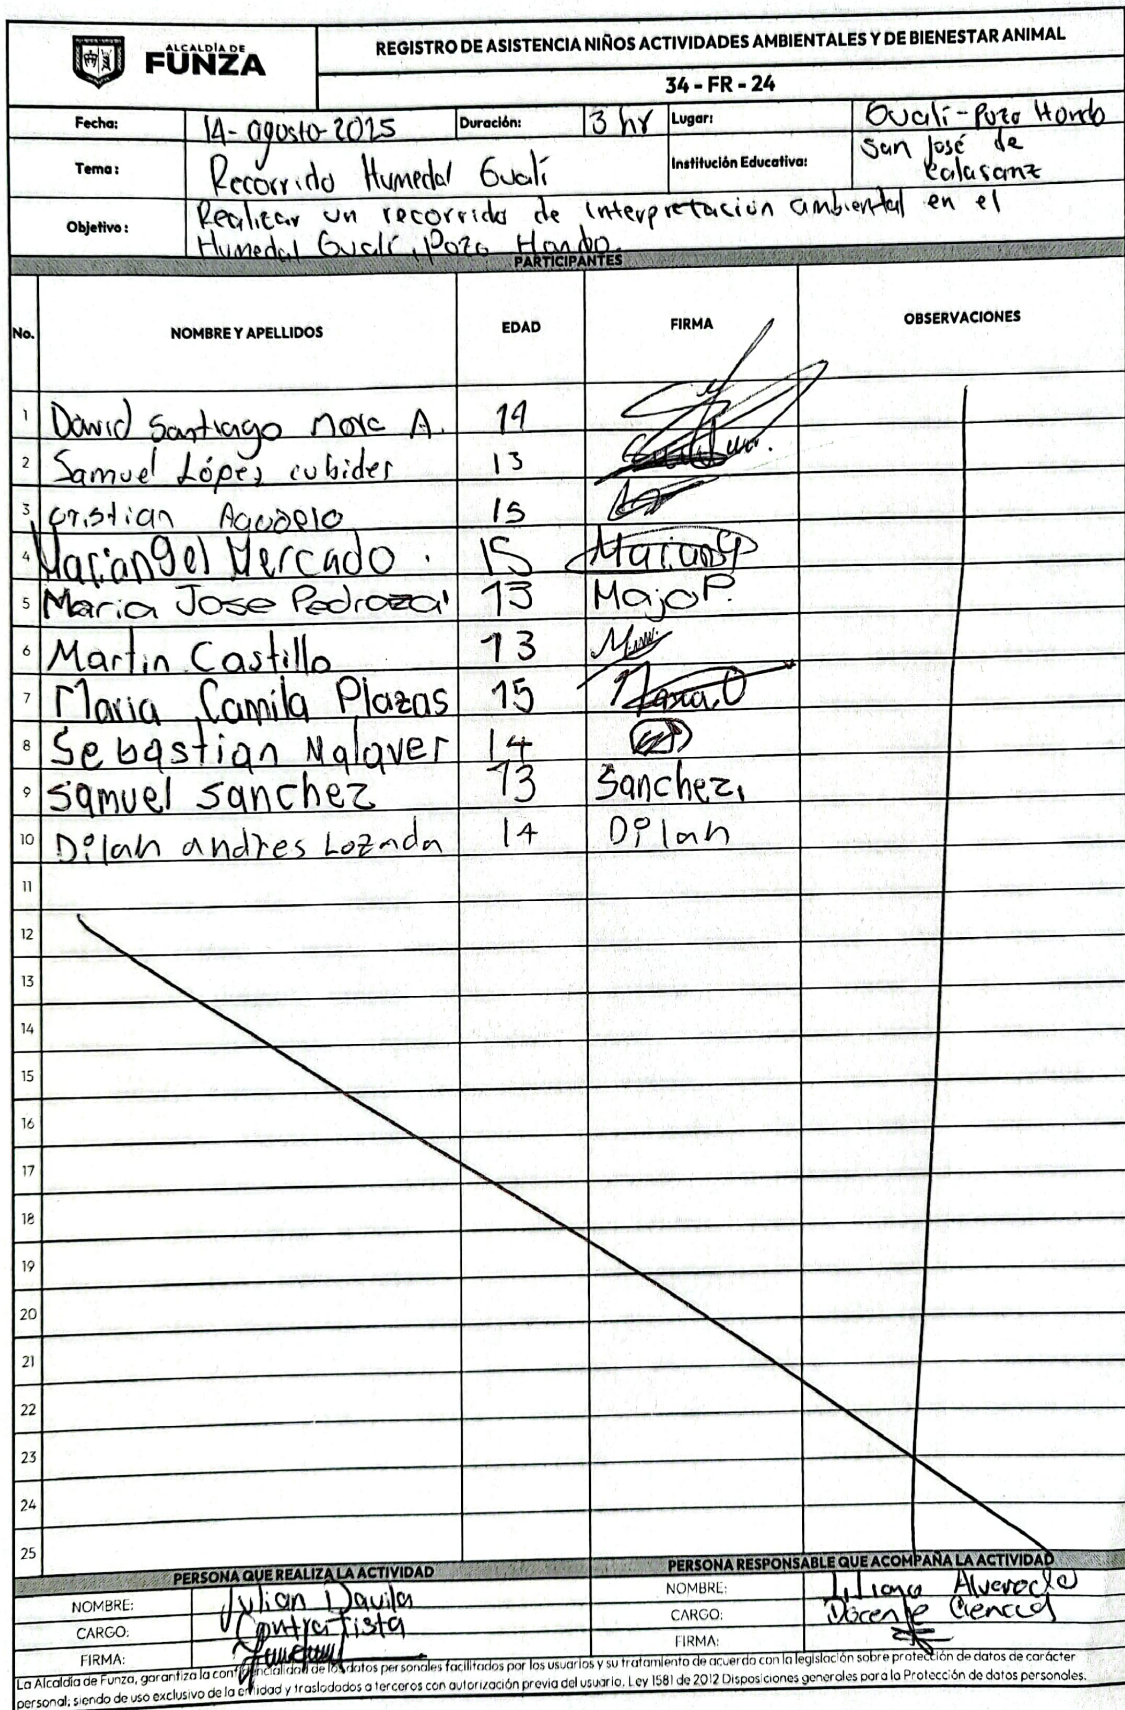 ALCALDÍA DE
FUNZA
REGISTRO DE ASISTENCIA NIÑOS ACTIVIDADES AMBIENTALES Y DE BIENESTAR ANIMAL
34 - FR - 24
Fecha: 14-agosto-2025 Duración: 3 hr Lugar: Gualí-Pozo Hondo
Tema: Recorrido Humedal Gualí Institución Educativa: San José de Calasanz
Objetivo: Realizar un recorrido de interpretación ambiental en el
Humedal Gualí, Pozo Hondo.
PARTICIPANTES
No. NOMBRE Y APELLIDOS EDAD FIRMA OBSERVACIONES
1 David Santiago Mora A. 14
2 Samuel López cubides 13
3 Cristian Agudelo 15
4 Mariangel Mercado . 15 Mariang
5 Maria Jose Pedroza 13 Majo P.
6 Martin Castillo 13
7 Maria Camila Plazas 15
8 Sebastian Malaver 14
9 Samuel Sanchez 13 Sanchez.
10 Dilan andres Lozada 14 Dilan
11
12
13
14
15
16
17
18
19
20
21
22
23
24
25
PERSONA QUE REALIZA LA ACTIVIDAD PERSONA RESPONSABLE QUE ACOMPAÑA LA ACTIVIDAD
NOMBRE: Julian Davila NOMBRE: Liliana Alvarado
CARGO: Contratista CARGO: Docente Ciencias
FIRMA: FIRMA:
La Alcaldía de Funza, garantiza la confidencialidad de los datos personales facilitados por los usuarios y su tratamiento de acuerdo con la legislación sobre protección de datos de carácter
personal; siendo de uso exclusivo de la entidad y trasladados a terceros con autorización previa del usuario. Ley 1581 de 2012 Disposiciones generales para la Protección de datos personales.